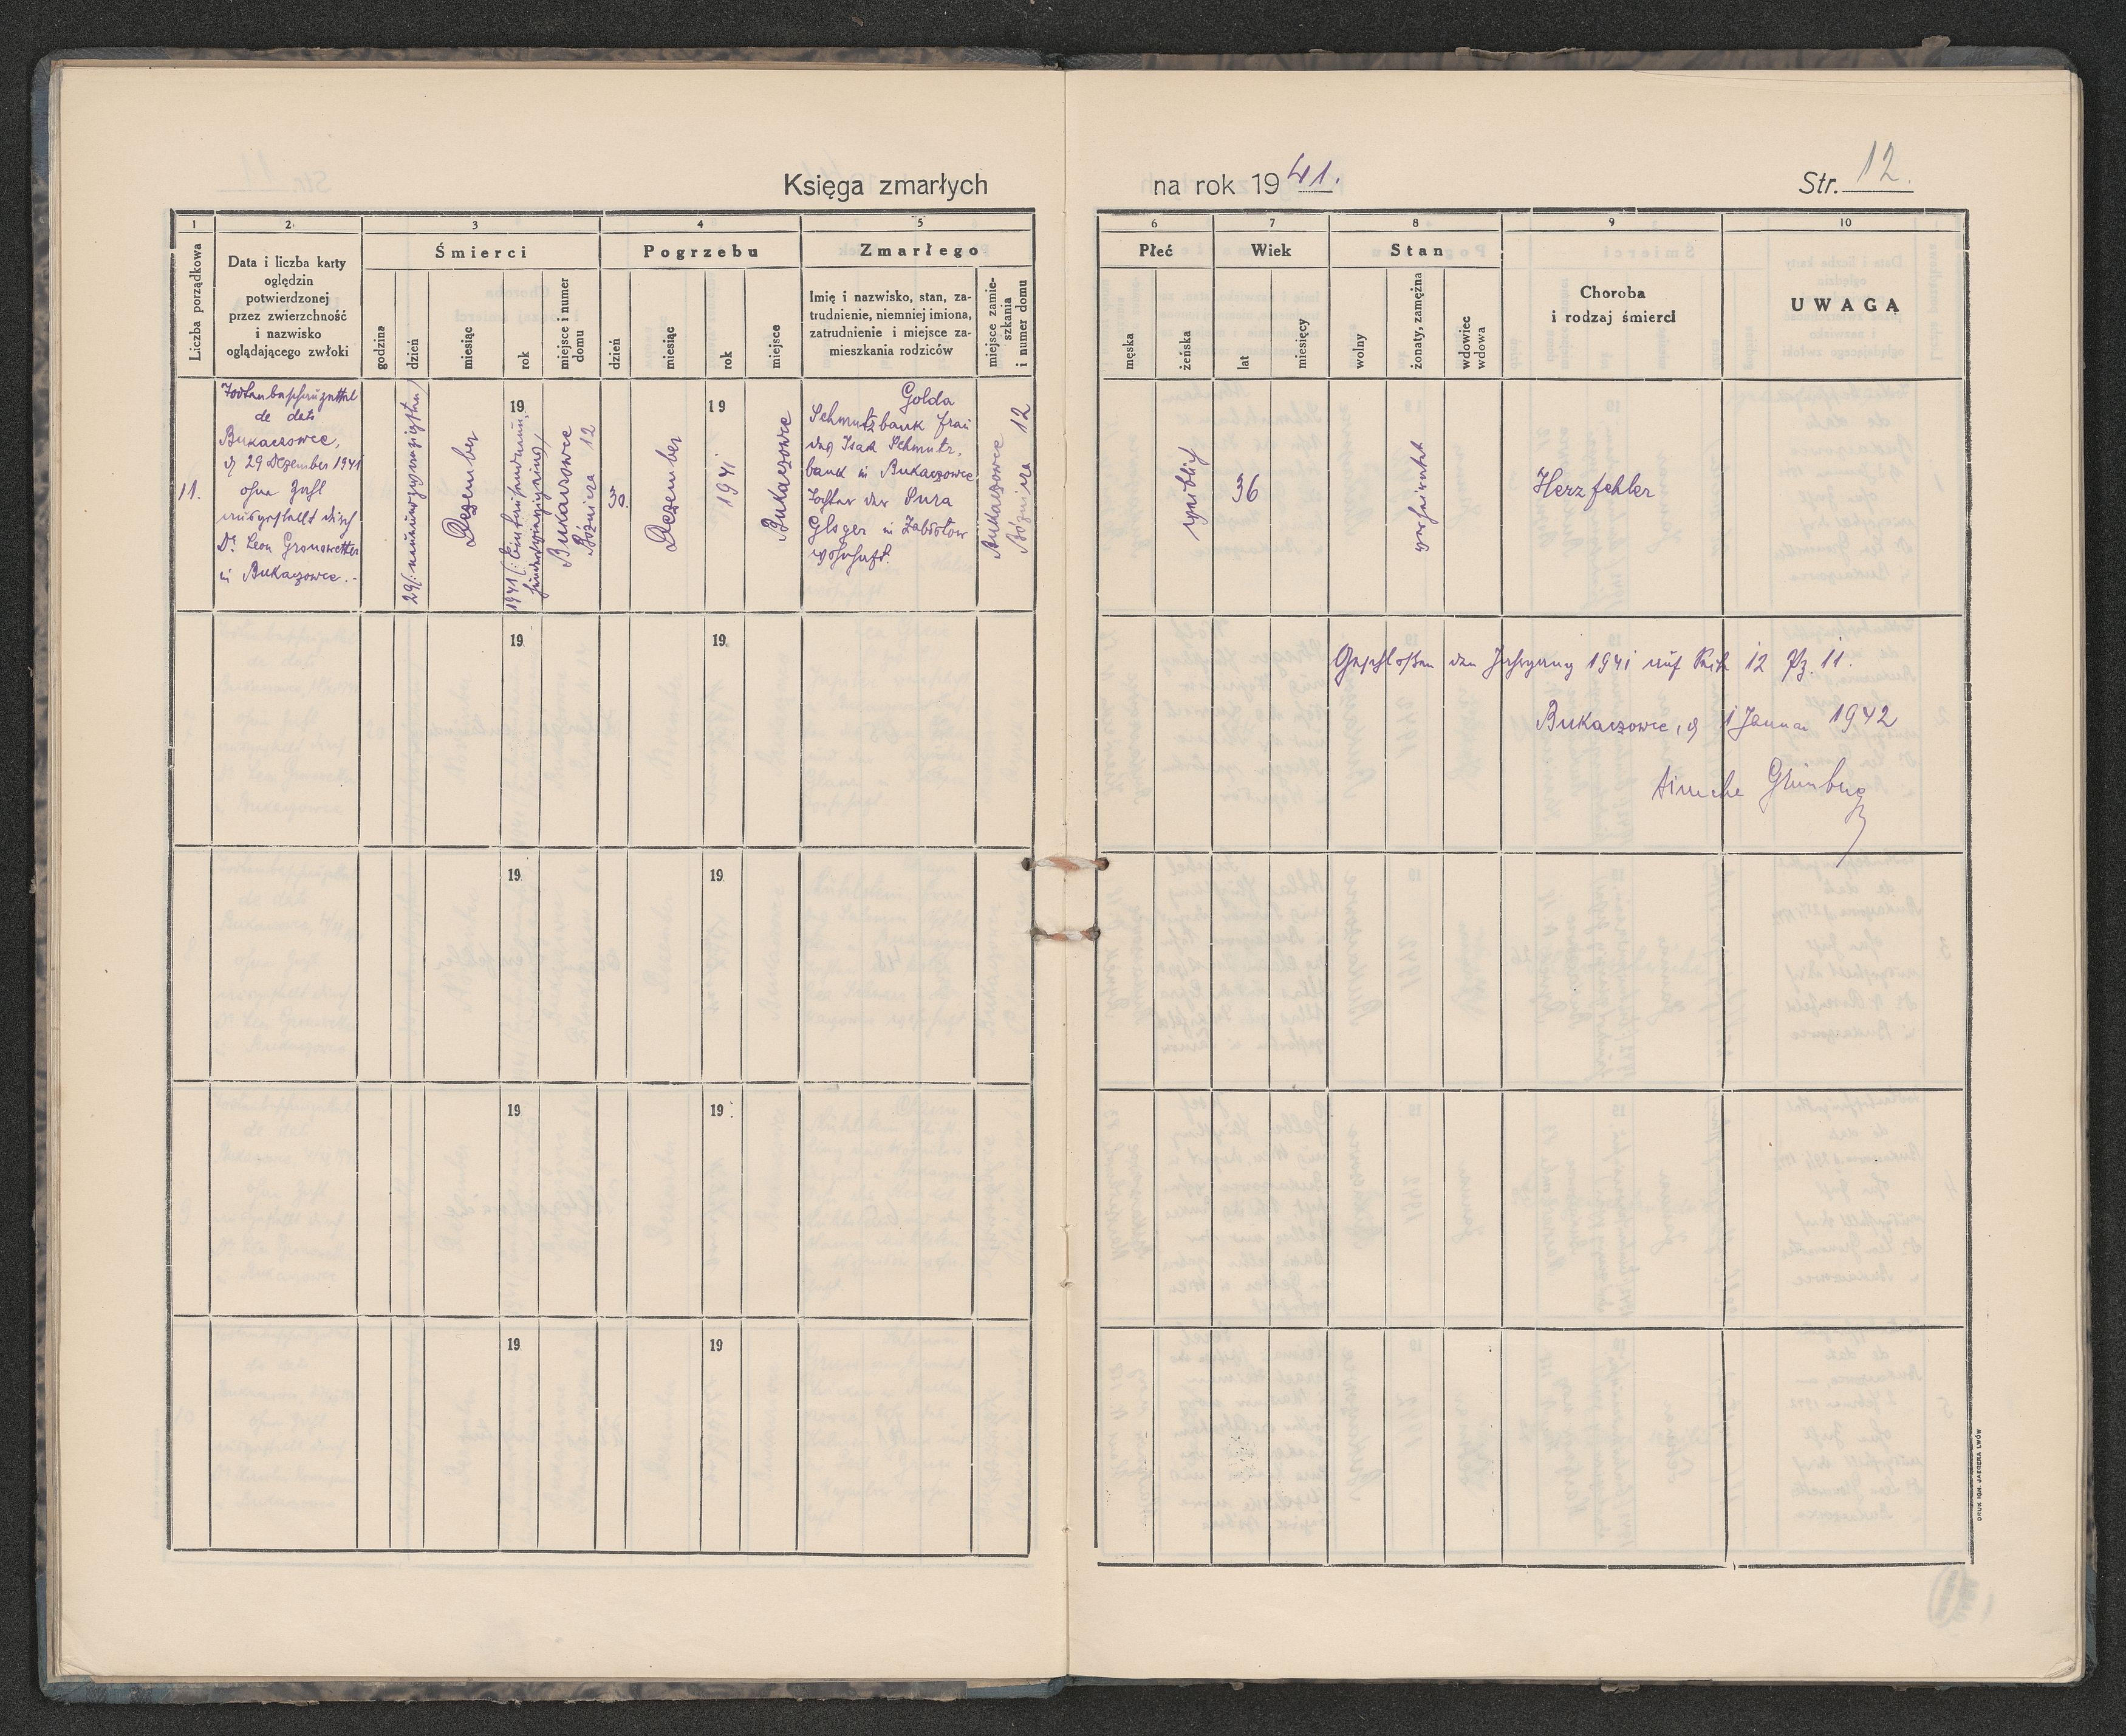 Księga zmarłych
na rok 1941.
Str. 12.
1
2
3
4
5
Liczba porządkowa
Data i liczba karty
oględzin
potwierdzonej
przez zwierzchność
i nazwisko
oglądającego zwłoki
Śmierci
godzina
dzień
miesiąc
rok
miejsce i numer
domu
Pogrzebu
dzień
miesiąc
rok
miejsce
Zmarłego
Imię i nazwisko, stan, za-
trudnienie, niemniej imiona,
zatrudnienie i miejsce za-
mieszkania rodziców
miejsce zamie-
szkania
i numer domu
6
7
8
9
10
Płeć
męska
żeńska
Wiek
lat
miesięcy
Stan
wolny
żonaty, zamężna
wdowiec
wdowa
Choroba
i rodzaj śmierci
UWAGĄ
11.
Todtenbeschauzettel
de dato
Bukaczowce,
29 Dezember 1941
ohne Zahl
ausgestellt durch
Dr. Leon Gronowetter
in Bukaczowce.-
29/: neunundzwanzigsten/
Dezember
19
1941 (: Eintausendneun-
hunderteinundvierzig/
Bukaczowce
Bóżnicza 12
30.
Dezember
19
1941
Bukaczowce
Golda
Schmutzbank Frau
des Isak Schmutz-
bank in Bukaczowce
Tochter der Sura
in Zabłotow
wohnhaft.
Bukaczowce
Bóżnicza 12
weiblich
36
verheiratet
Herzfehler
19
19
Geschloßen den Jahrgang 1941 auf Seite 12 Pz. 11.
Bukaczowce, d 1 Januar 1942
Grünberg
19
19
19
19
19
19
DRUK IGN. JAEGERA LWÓW